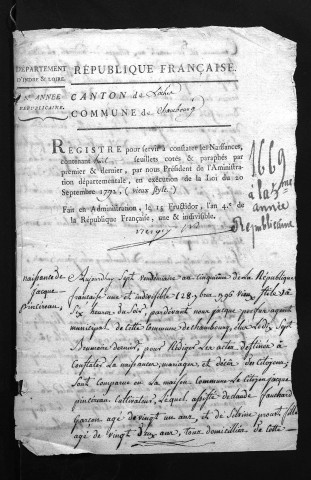 DÉPARTEMENT
D'INDRE & LOIRE.
ANNÉE
RÉPUBLICAINE.
RÉPUBLIQUE FRANÇAISE.
CANTON de
COMMUNE de Chambourg
REGISTRE pour servir à constater les Naissances,
contenant feuillets cotés & paraphés par
premier & dernier, par nous Président de l'Aministra-
tion départementale, en exécution de la Loi du 20
Septembre 1792, (vieux style.)
Fait en Administration, le 15 Fructidor, l'an 4.e de
la République Française, une & indivisible.
1669
année
Republicaine
naissance de
jacque
pincereau
Aujourdhuy Sept vendemiaire an cinquieme de la République
française une et indivisible 28 7bre 1796 vieux stile à
Six heures du Soir, pardevant nous jacque agent
municipal de cette Commune de Chambourg, élu Sept
Brumaire dernier, pour Rédiger les actes destinés à
Constater La naissance, mariage et décès des Citoyens;
Sont Comparus en La maison Commune Le Citoyen jacque
pincereau Cultivateur, Lequel assisté de claude fouchard
garçon age de vingt un ans, et de Silvine fille
agé de vingt deux ans, tous domiciliés de Cette